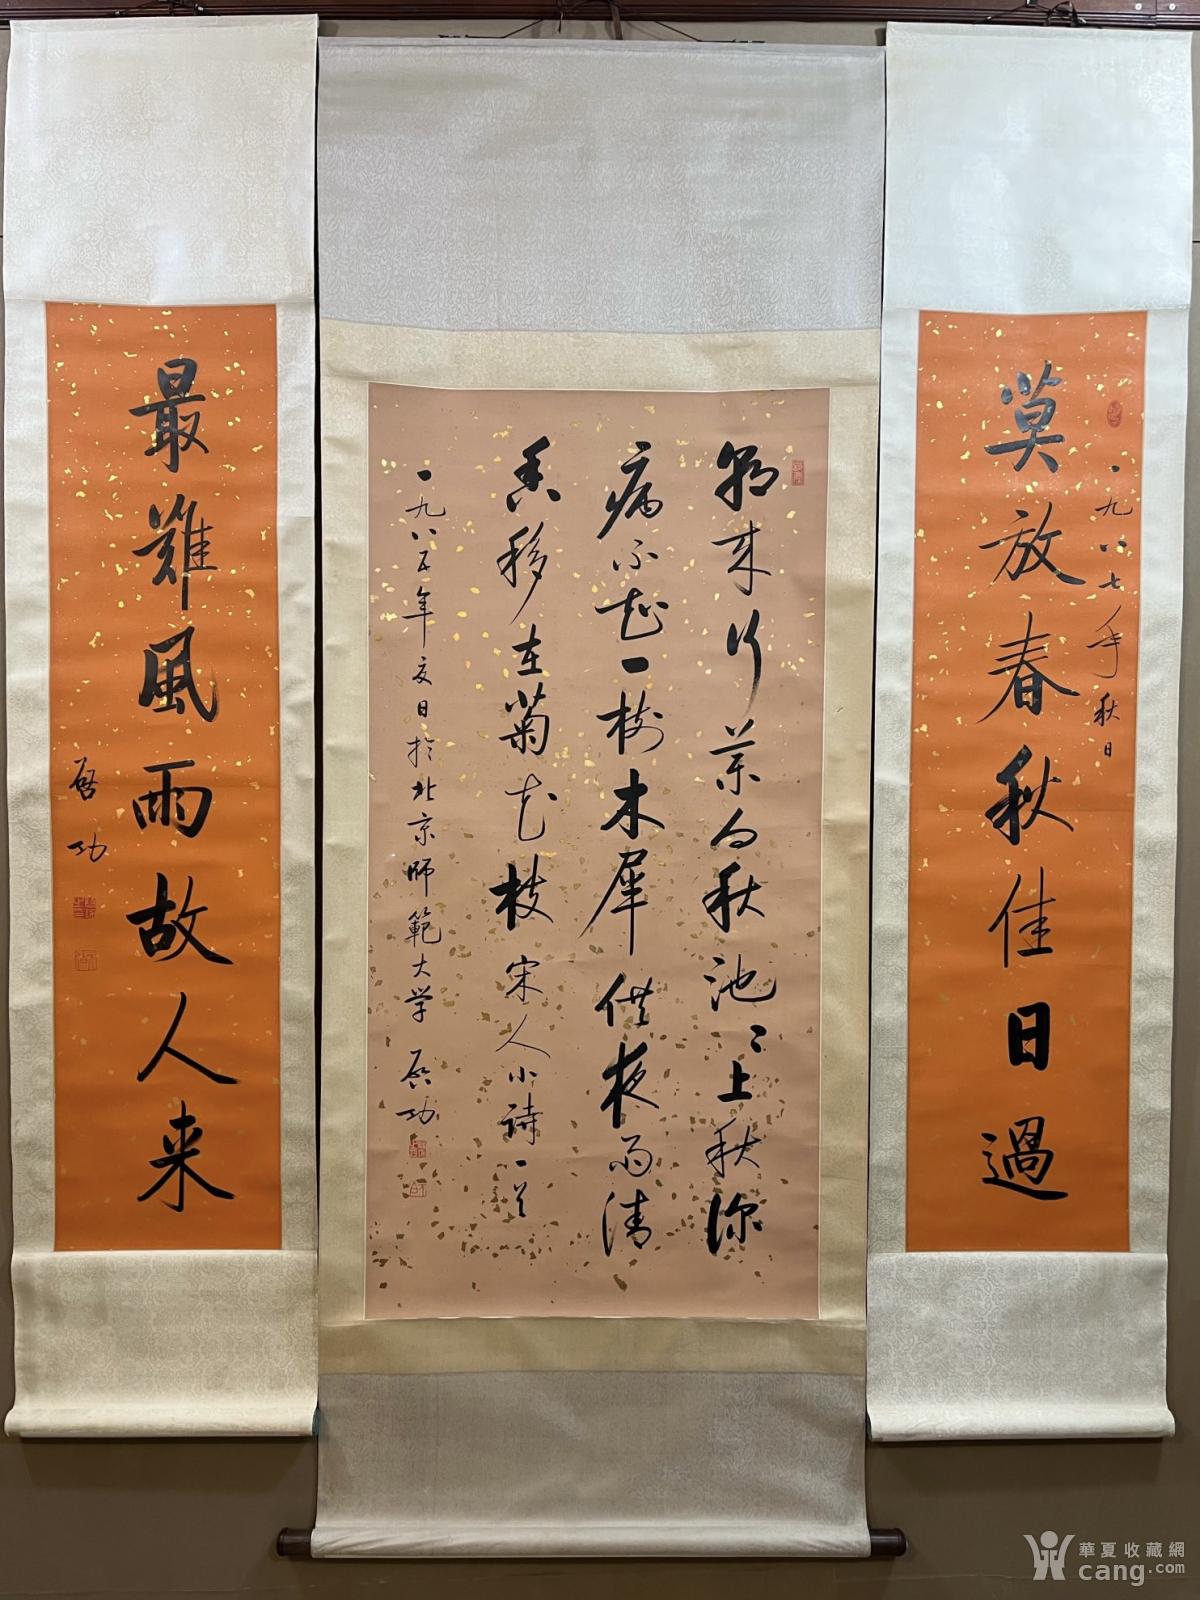 一九八七年秋日
莫放春秋佳日過
朝来行藥向秋池〻上秋深
病不知一樹木犀供夜雨清
香移在菊花枝 宋人小詩一首
一九八五年夏日於北京師範大学 啓功
最難風雨故人来
啓功
華夏收藏網
cang.com